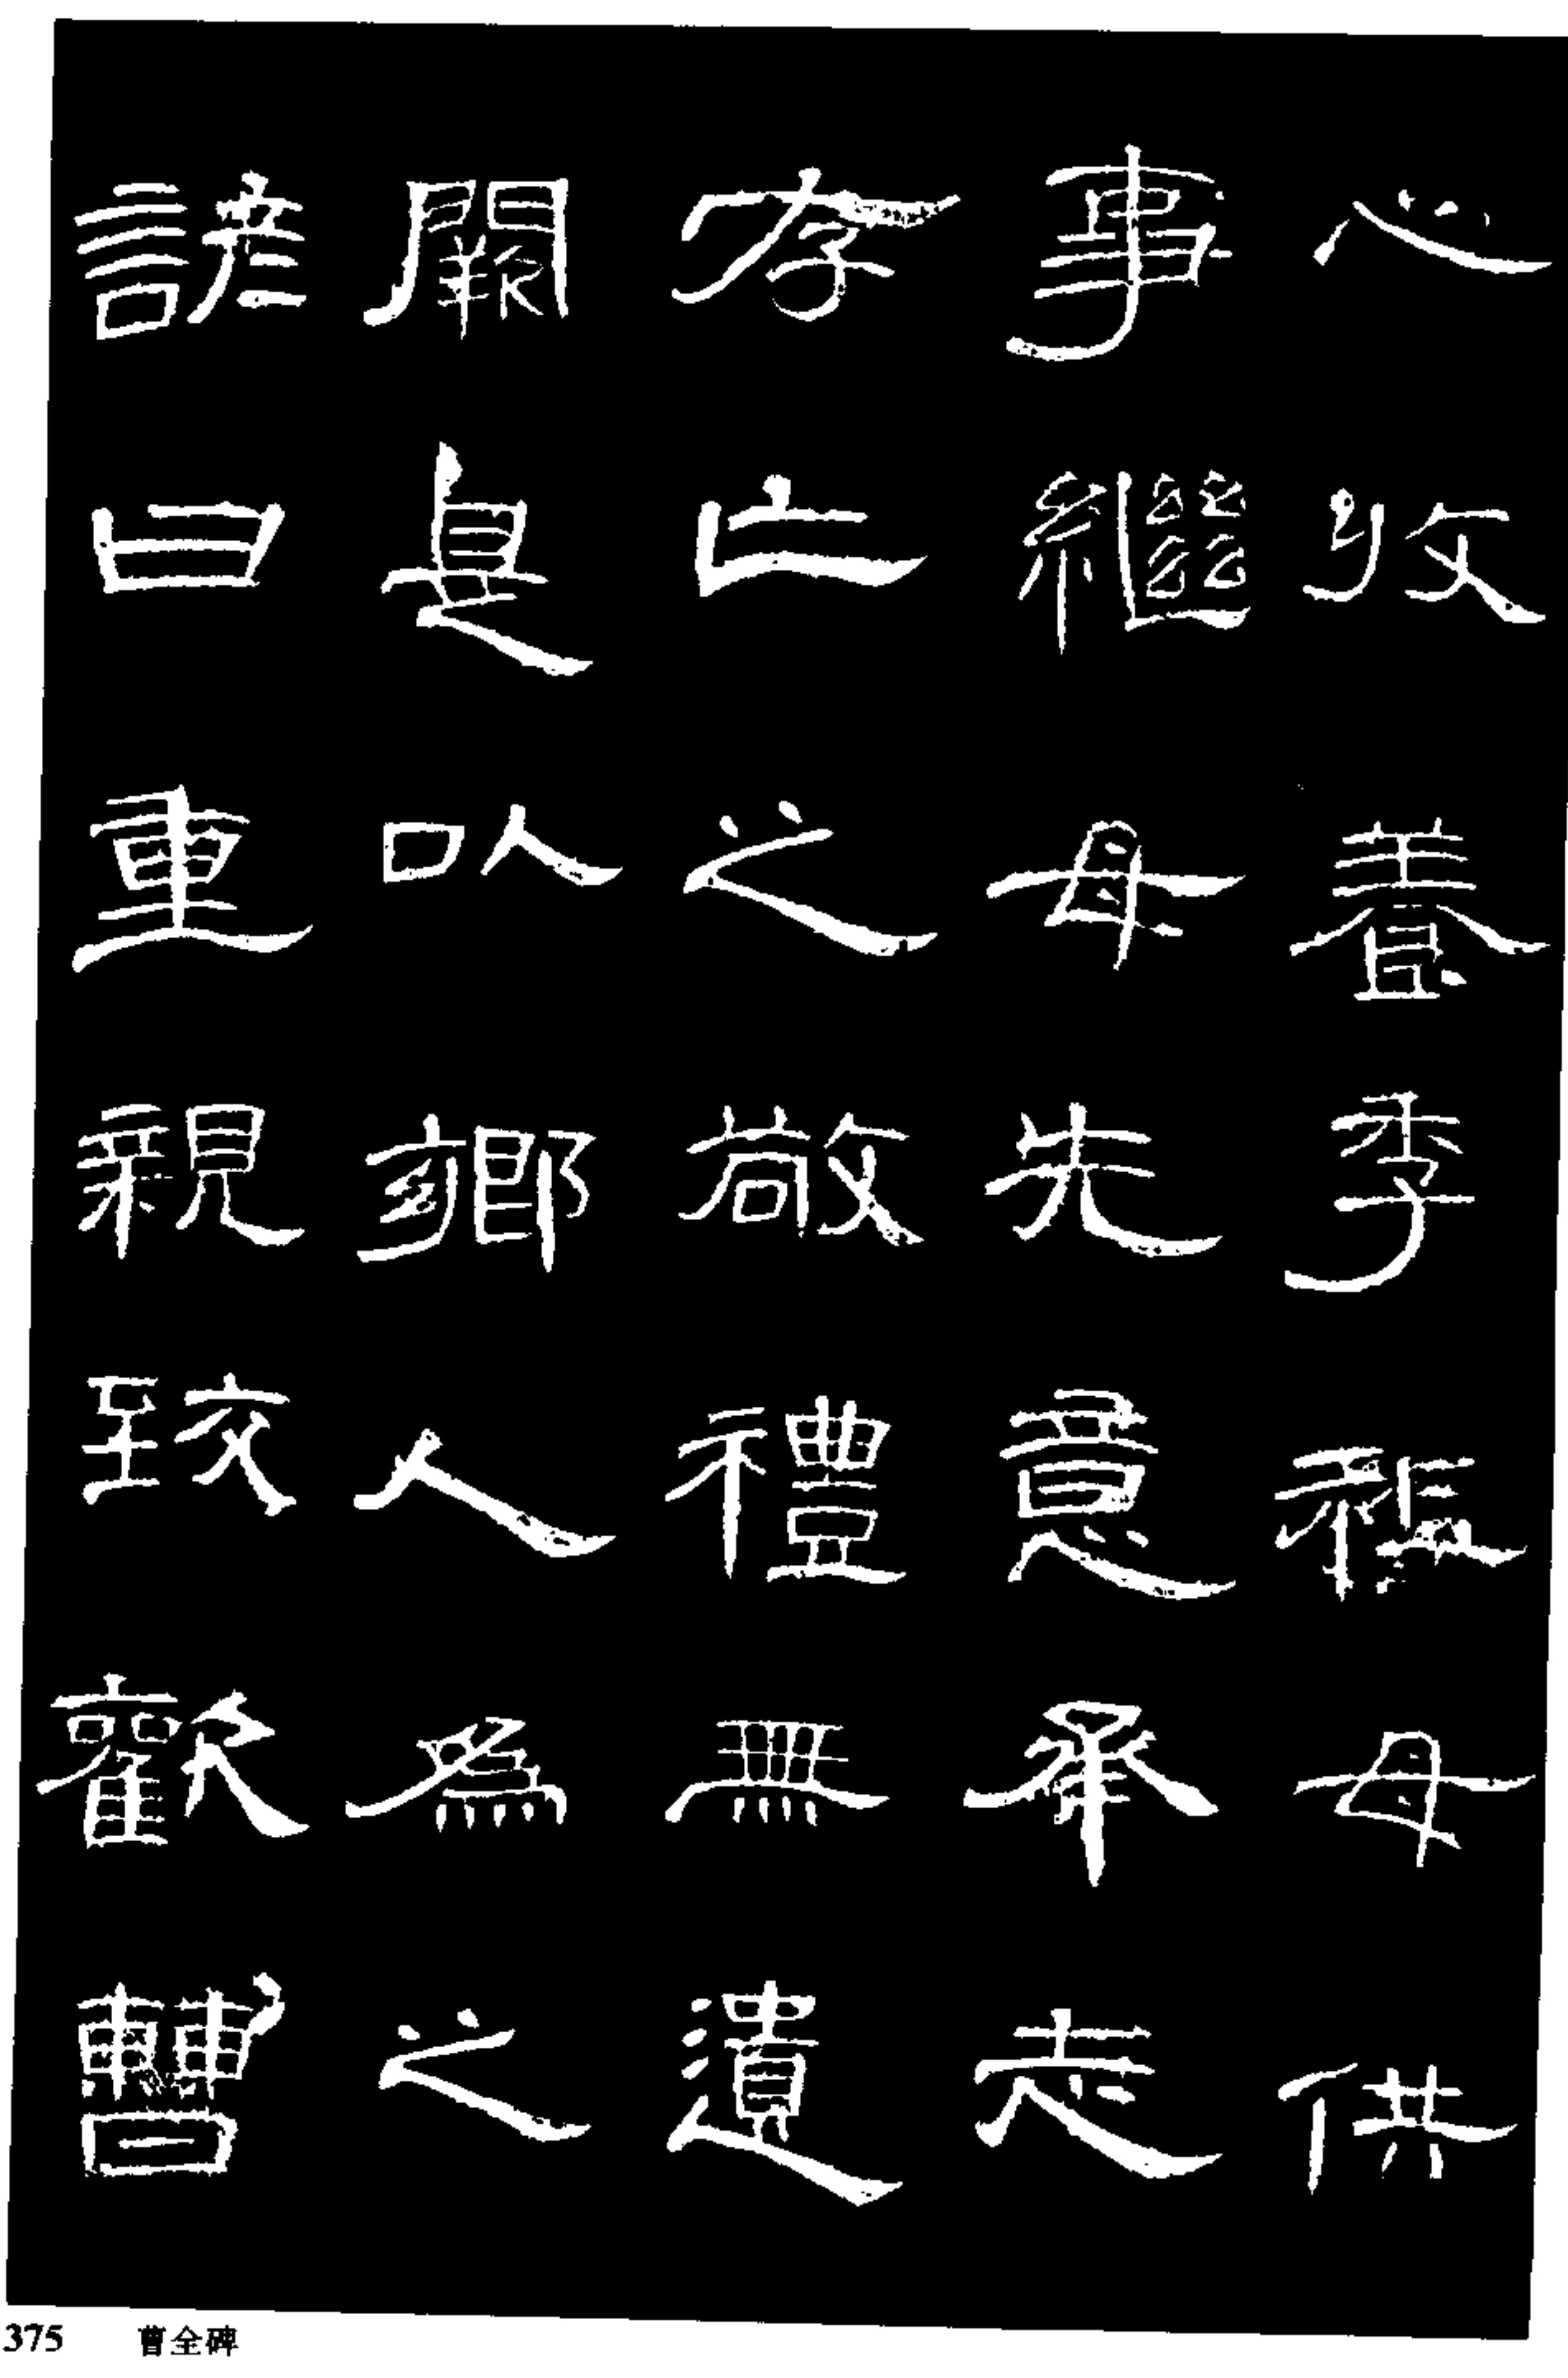 心收養季祖母供
事繼母先意承志
存亡之敬禮無遺
闕是以鄉人為之
諺曰重親致歡曹
375 曹全碑